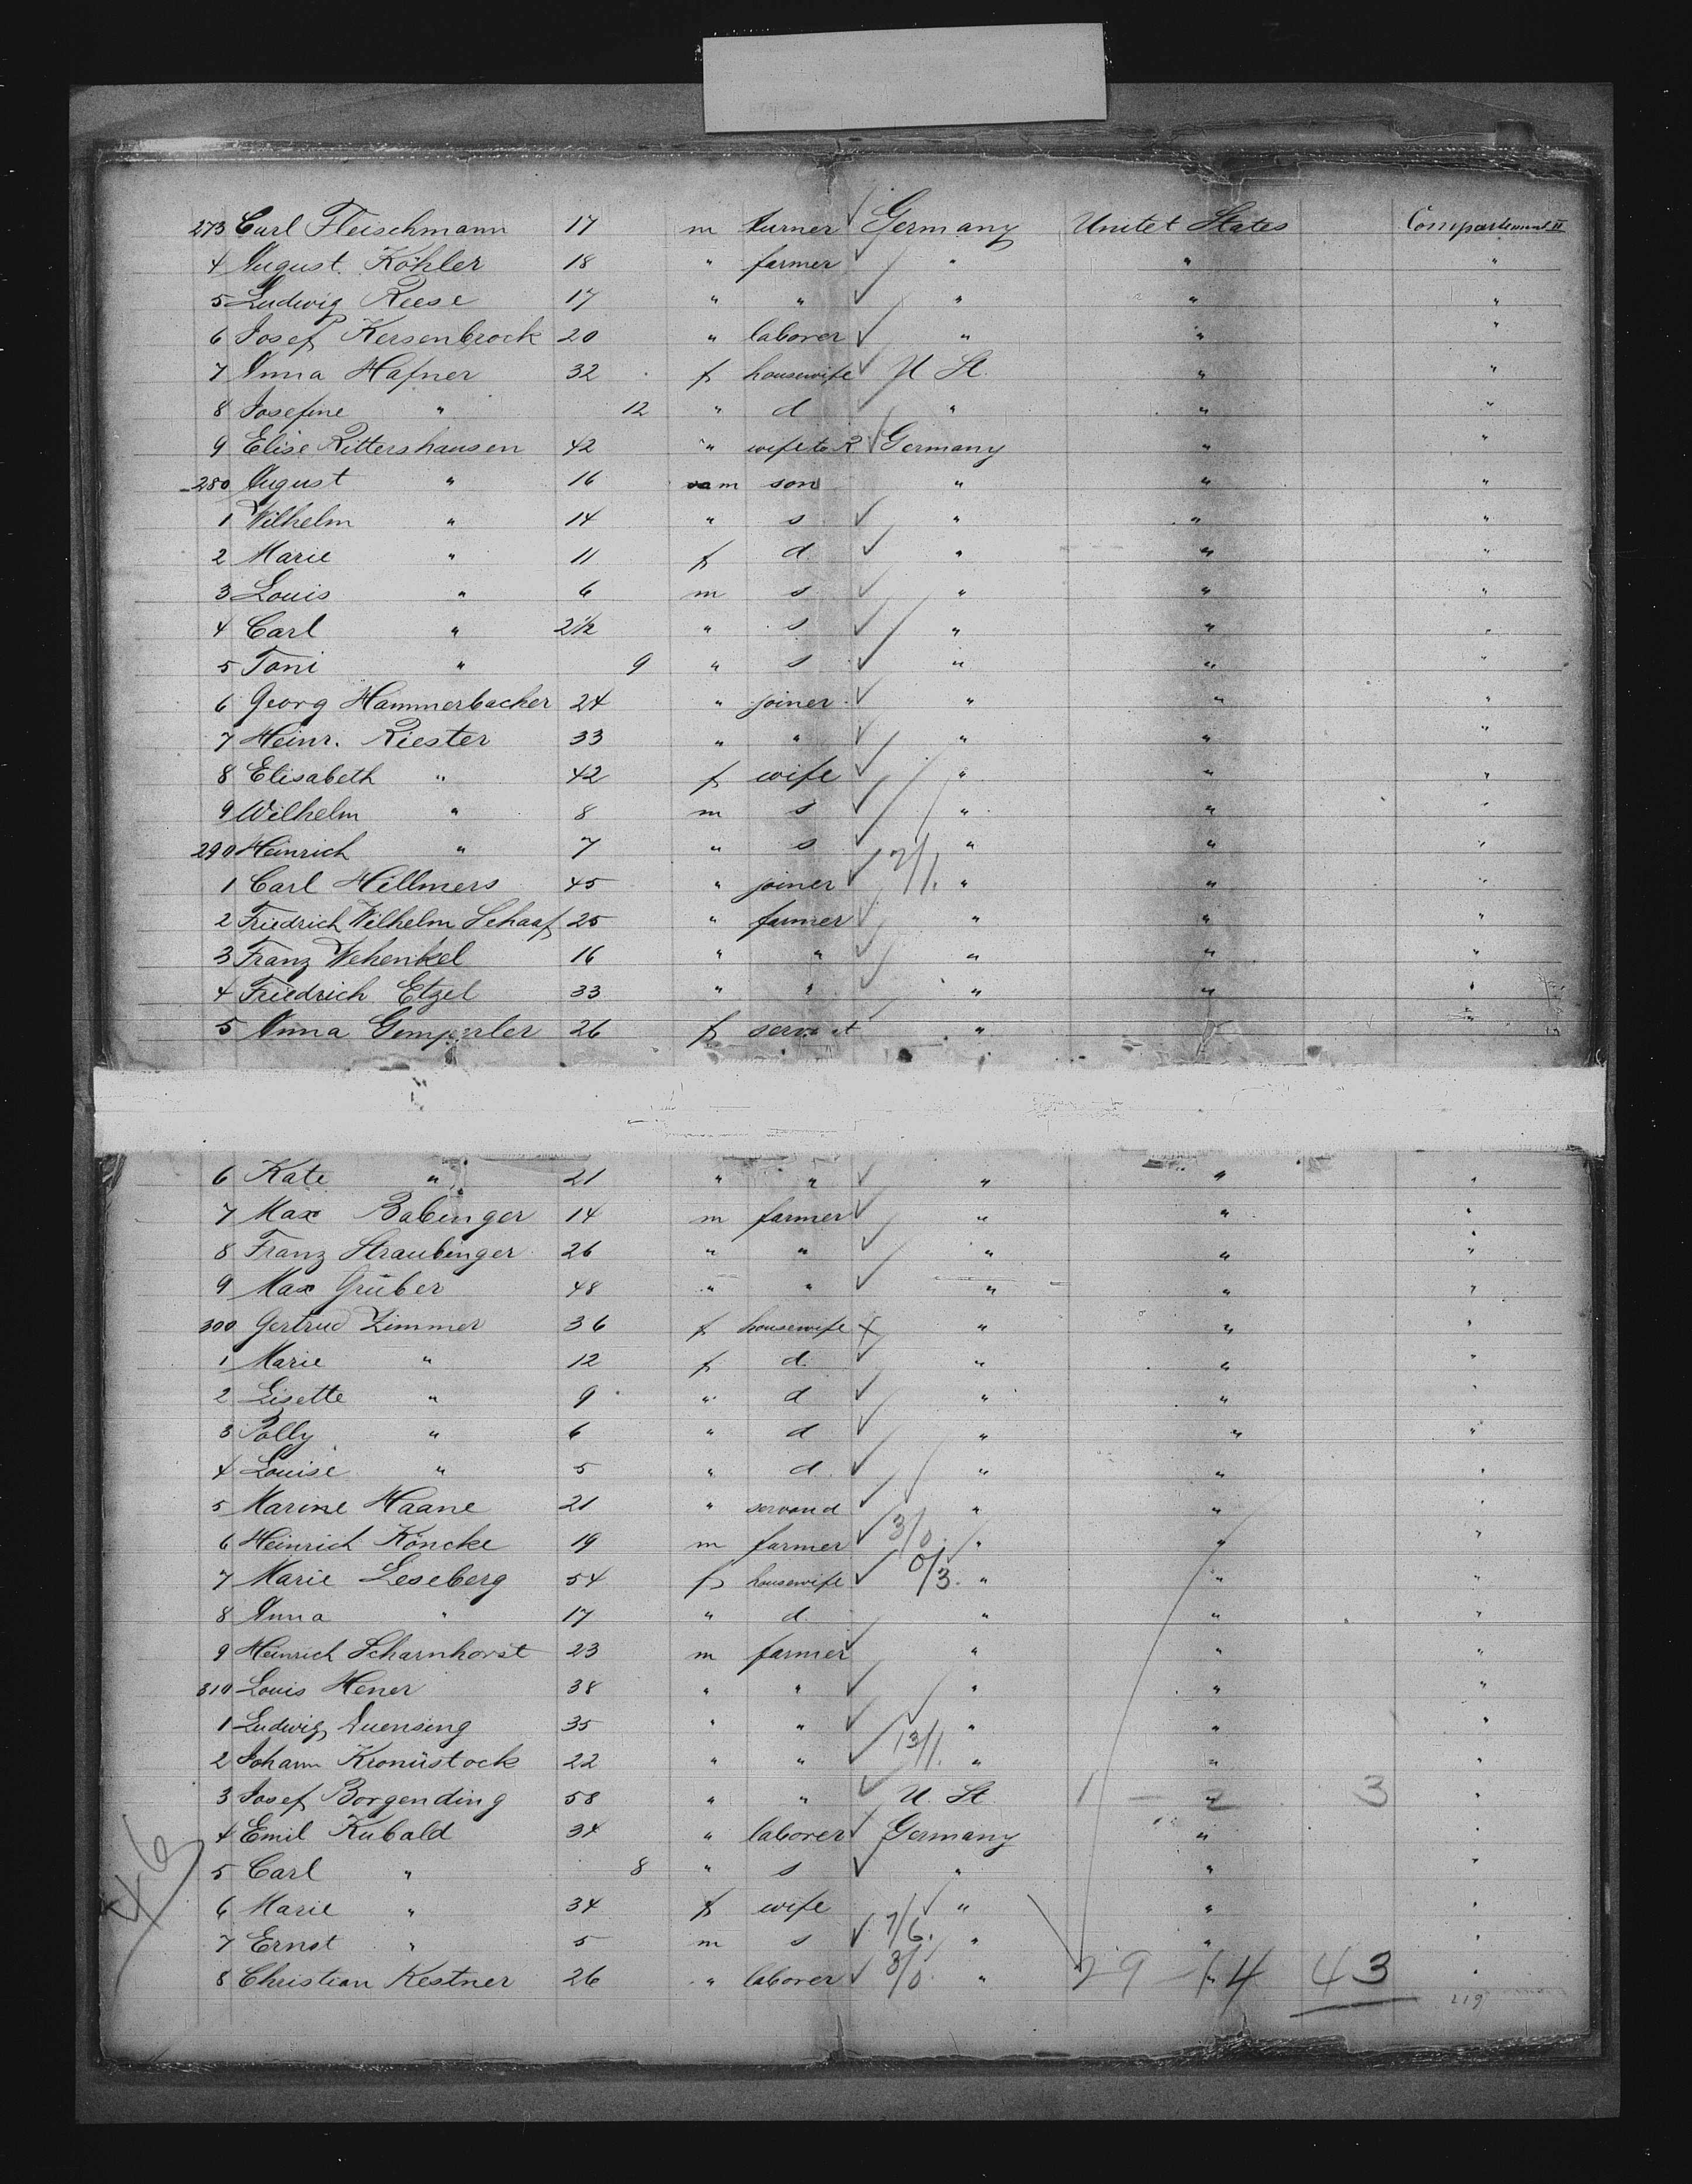 273 Carl Fleischmann 17 m turner ✓ Germany Unitet States Compartement II
4 August Köhler 18 " farmer ✓ " " "
5 Ludwig Reese 17 " " ✓ " " "
6 Josef Kersenbrock 20 " laborer ✓ " " "
7 Anna Hafner 32 f housewife ✓ U St. " "
8 Josefine " 12 " d ✓ " " "
9 Elise Rittershausen 42 " wife to R ✓ Germany " "
280 August " 16 m son " " "
1 Wilhelm " 14 " s ✓ " " "
2 Marie " 11 f d. ✓ " " "
3 Louis " 6 m s ✓ " " "
4 Carl " 2½ " s ✓ " " "
5 Toni " 9 " s ✓ " " "
6 Georg Hammerbacher 24 " joiner ✓ " " "
7 Heinr. Riester 33 " " ✓ " " "
8 Elisabeth " 42 f wife ✓ " " "
9 Wilhelm " 8 m s ✓ " " "
290 Heinrich " 7 " s ✓ " " "
1 Carl Hillmers 45 " joiner ✓ 7/1. " " "
2 Friedrich Wilhelm Schaaf 25 " farmer ✓ " " "
3 Franz Wehenkel 16 " " ✓ " " "
4 Friedrich Etzel 33 " " ✓ " " "
5 Anna 26 f " " "
6 Kate " 21 " " ✓ " " "
7 Max Babinger 14 m farmer ✓ " " "
8 Franz Straubinger 26 " " ✓ " " "
9 Max Gruber 48 " " ✓ " " "
300 Gertrud Zimmer 36 f housewife x " " "
1 Marie " 12 f d. ✓ " " "
2 Lisette " 9 " d ✓ " " "
3 Polly " 6 " d ✓ " " "
4 Louise " 5 " d. ✓ " " "
5 Marine Haane 21 " servand ✓ " " "
6 Heinrich Köncke 19 m farmer ✓ 3/0. " " "
7 Marie Leseberg 54 f housewife ✓ 0/3. " " "
8 Anna " 17 " d. " " "
9 Heinrich Scharnhorst 23 m farmer ✓ " " "
310 Louis Hener 38 " " ✓ " " "
1 Ludwig Duensing 35 " " ✓ " " "
2 Johann Kronüstock 22 " " ✓ 13/1. " " "
3 Josef Borgending 58 " " ✓ U. St. 1 - 2 3 "
4 Emil Kubald 34 " laborer ✓ Germany " "
5 Carl " 8 " s ✓ " " "
6 Marie " 34 f wife " " "
7 Ernst " 5 m s ✓ 7/6. " " "
8 Christian Kestner 26 " laborer ✓ 3/0. " 29 - 14 43 "
46
219